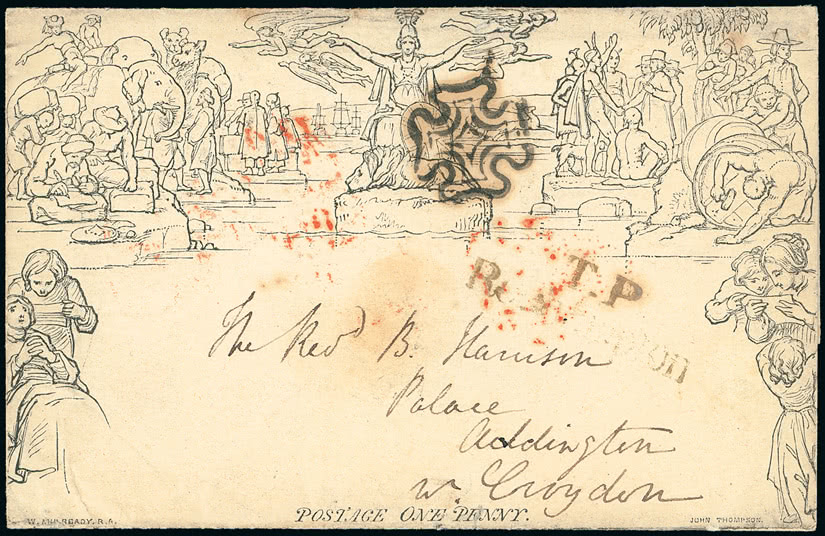 T.P
The Revd B. Harrison
Palace
Addington
W. Croydon
POSTAGE ONE PENNY.
W. MULREADY, R.A.
JOHN THOMPSON.